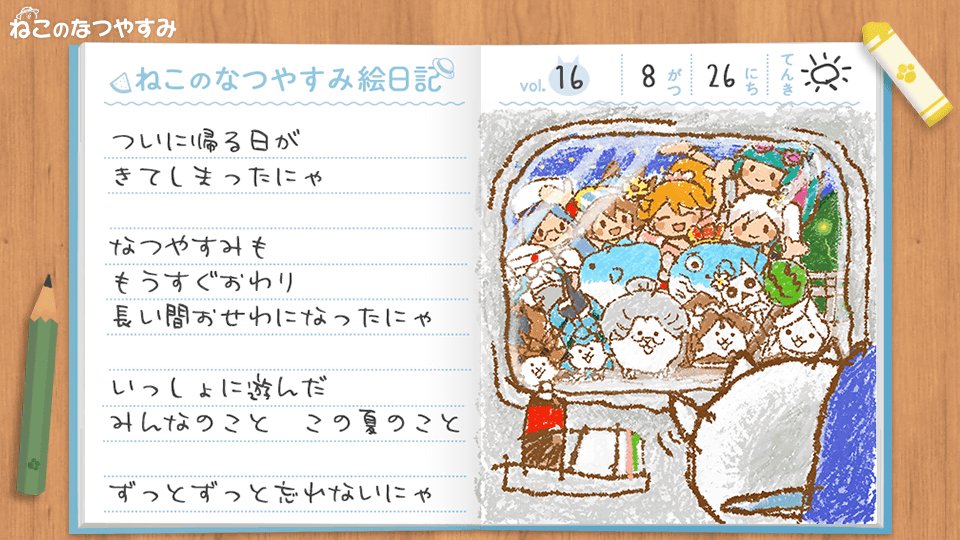 ねこのなつやすみ
ねこのなつやすみ絵日記
vol. 16 8 がつ 26 にち てんき
ついに帰る日が
きてしまったにゃ
なつやすみも
もうすぐおわり
長い間おせわになったにゃ
いっしょに遊んだ
みんなのこと この夏のこと
ずっとずっと忘れないにゃ